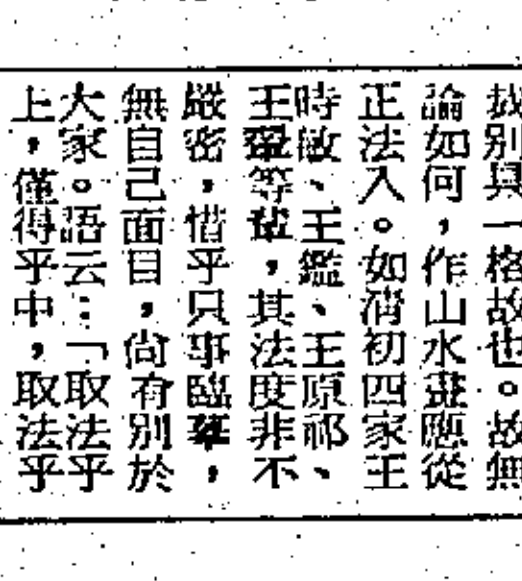 裁別具一格故也。故無
論如何，作山水畫應從
正法入。如清初四家王
時敏、王鑑、王原祁、
王翬等輩，其法度非不
嚴密，惜乎只事臨摹，
無自己面目，尚有別於
大家。語云：「取法乎
上，僅得乎中，取法乎